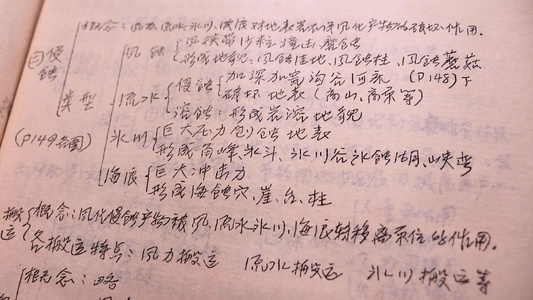 概念：风力、流水、冰川、海浪对地表岩石及风化产物的破坏作用.
②侵蚀
类型
(P149各图)
风蚀 风挟带沙粒撞击、磨蚀
形成戈壁、风蚀洼地、风蚀柱、风蚀蘑菇
流水 侵蚀 加深加宽沟谷河流 (P148)下
破坏地表(高山、高原等)
溶蚀：形成岩溶地貌
冰川 巨大压力刨蚀地表
形成角峰、冰斗、冰川谷、冰蚀湖、峡弯
海浪 巨大冲击力
形成海蚀穴、崖、台、柱
搬运 概念：风化侵蚀产物被风、流水、冰川、海浪转移离原位的作用.
各搬运特点：风力搬运 流水搬运 冰川搬运等
概念：略